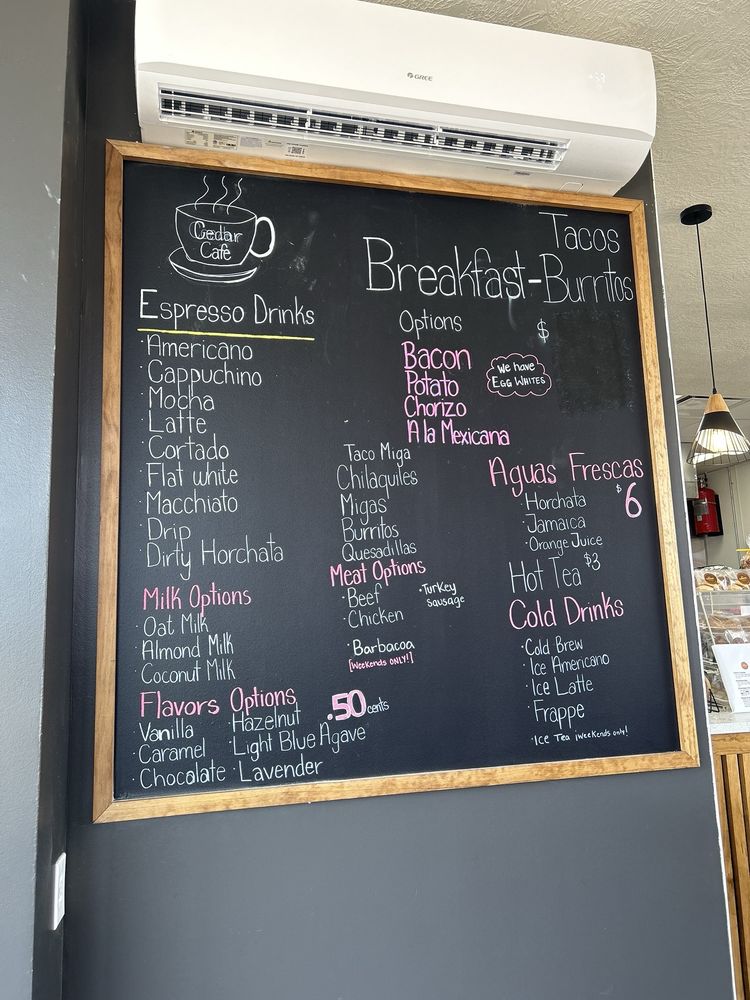 GREE
Cedar
Cafe
Tacos
Breakfast-Burritos
Espresso Drinks
·Americano
·Cappuchino
·Mocha
·Latte
·Cortado
·Flat white
·Macchiato
·Drip
·Dirty Horchata
Milk Options
·Oat Milk
·Almond Milk
·Coconut Milk
Flavors Options
.50 cents
·Vanilla ·Hazelnut
·Caramel ·Light Blue Agave
·Chocalate ·Lavender
Options
$
Bacon
Potato
Chorizo
A la Mexicana
We have
EGG WHITES
Taco Miga
Chilaquiles
Migas
Burritos
Quesadillas
Meat Options
·Beef
·Chicken
·Turkey
sausage
·Barbacoa
[Weekends ONLY!]
Aguas Frescas
$6
·Horchata
·Jamaica
·Orange Juice
Hot Tea $3
Cold Drinks
·Cold Brew
·Ice Americano
·Ice Latte
·Frappe
·Ice Tea ¡weekends only!